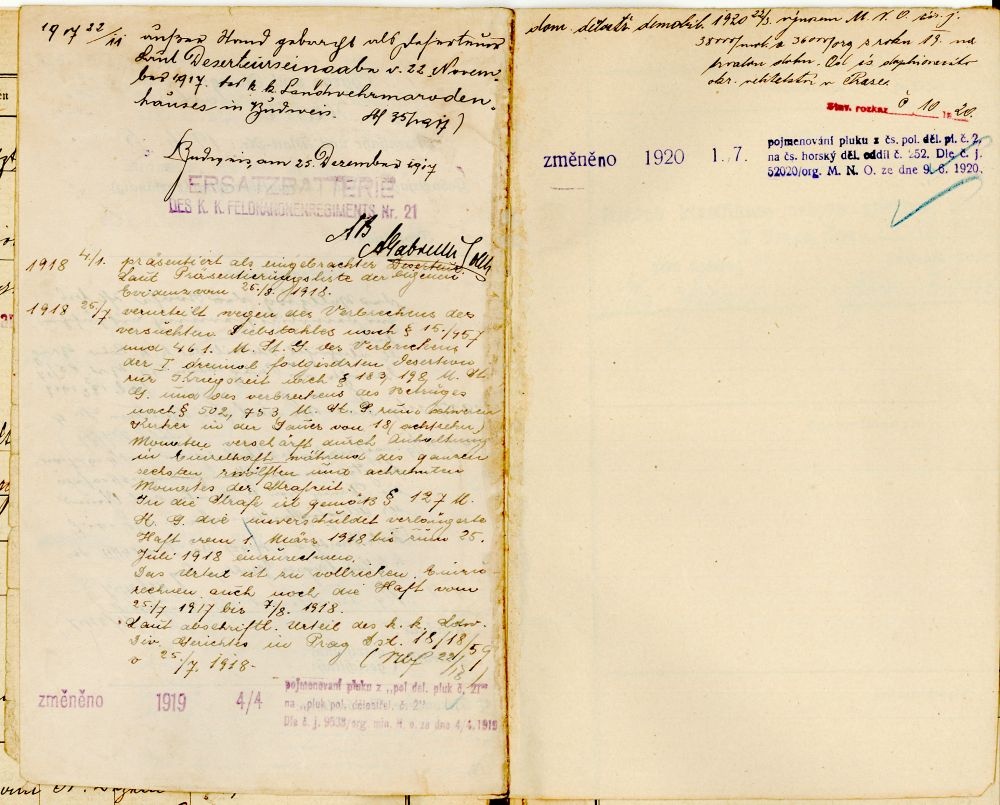 1917 22/11 außer Stand gebracht als Deserteur
laut Deserteurseingabe v. 22. Novem-
ber 1917. des k. k. Landwehrmaroden-
hauses in Budweis. 35/1917)
Budweis, am 25. Dezember 1917
ERSATZBATTERIE
DES K. K. FELDKANONENREGIMENTS Nr. 21
1918 4/1. präsentiert als eingebrachter Deserteur.
Laut Präsentierungsliste der eigenen
Evidenz vom 25./8. 1918.
1918 25/7 verurteilt wegen des Verbrechens des
versuchten Diebstahles nach § 15./457
und 461. M. St. G. des Verbrechens
der I. dreimal fortgesetzten Desertion
zur Kriegszeit nach § 183, 198, M. St.
G. und des Verbrechens des Betruges
nach § 502, 753, M. St. G. zum schweren
Kerker in der Dauer von 18 (achtzehn)
Monaten verschärft durch Anhaltung
in Einzelhaft während des ganzen
sechsten zwölften und achtzehnten
Monates der Strafzeit.
In die Strafe ist gemäß § 127 M.
St. G. die unverschuldet verlängerte
Haft vom 1. März 1918 bis zum 25.
Juli 1918 einzurechnen.
Das Urteil ist zu vollziehen. Einzu-
rechnen auch noch die Haft vom
25./7 1917 bis 7/8. 1918.
Laut abschriftl. Urteil des k. k. Ldw.
Div. Gerichtes in Prag Dst. 18/18/59
v 25./7. 1918.
změněno 1919 4/4 pojmenování pluku z „pol děl. pluk č. 21"
na „pluk pol. dělostřel. č. 2"
Dle č. j. 9538/org. min. N. o. ze dne 4/4. 1919
dom. demobil. 1920 výnosem M. N. O. čís. j.
38000/mob. a 36000/org z roku 19. na
okr. velitelství v Praze.
Stav. rozkaz č 10 1920.
změněno 1920 1. 7. pojmenování pluku z čs. pol. děl. pl. č. 2.
na čs. horský děl. oddíl č. 252. Dle č. j.
52020/org. M. N. O. ze dne 9. 6. 1920.